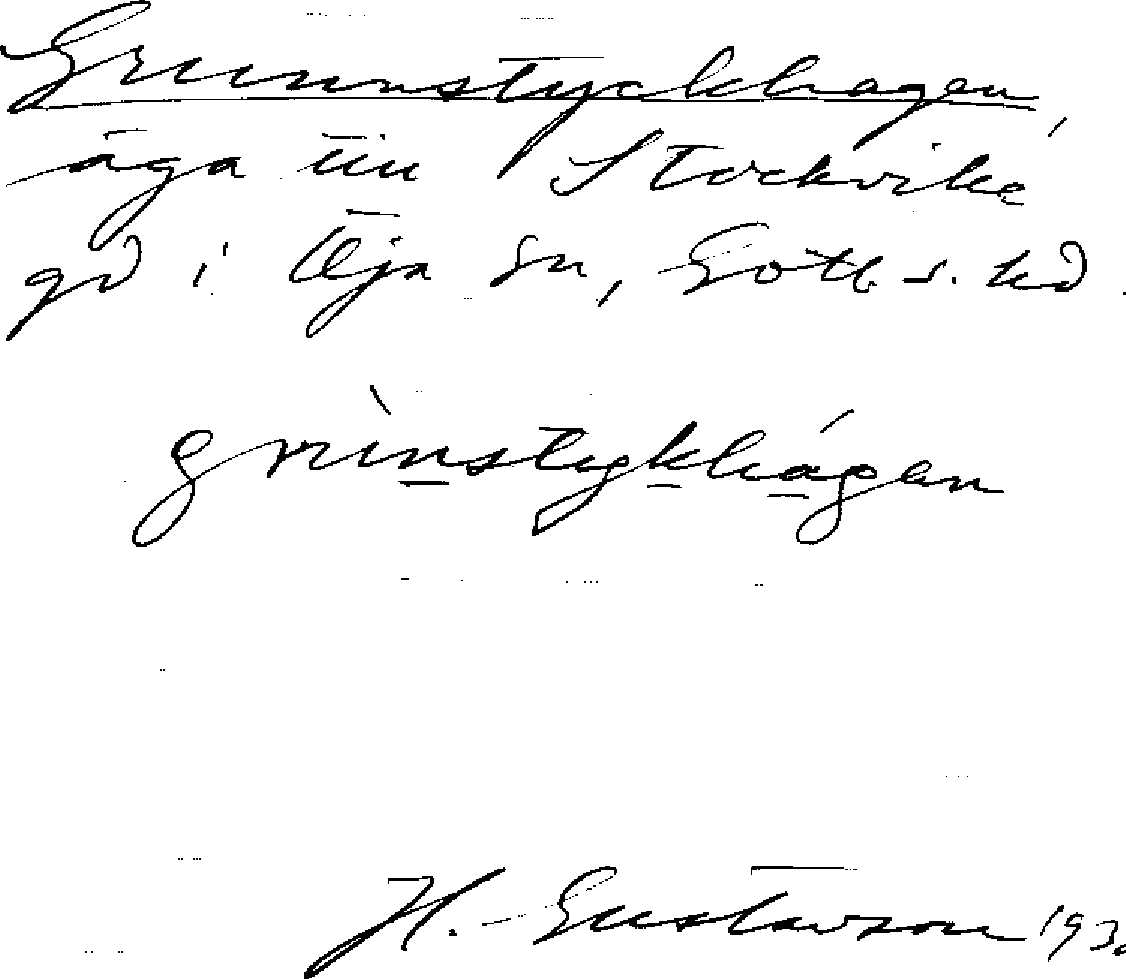 Grunnstyckhagen,
äga till Stockvike
gd i Öja sn, Gotl. s. hd.
grùnstykhágen
H. Gustavson 193